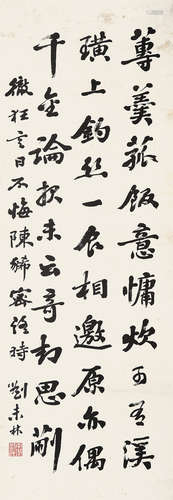 蓴羹菰飯意慵炊可有溪
璜上釣絲一食相邀原亦偶
千金論報未云奇却思蒯
徹狂言日不悔陳豨密時
劉未林